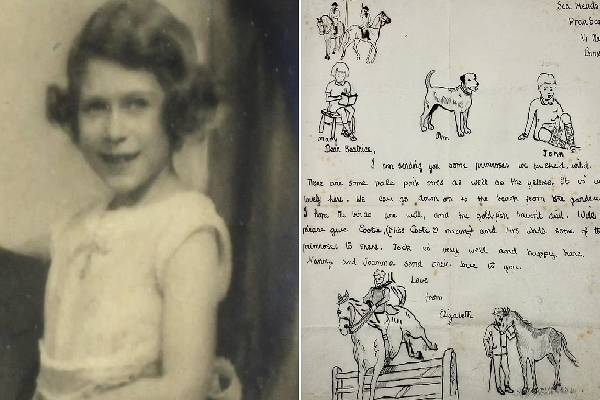 Sea Meads
Dear Beatrice,
Jim
John
I am sending you some primroses we picked wild.
There are some pale pink ones as well as the yellow. It is
lovely here. We can go down on to the beach from the garden.
I hope the birds are well, and the goldfish havent died. Will
please give and some of the
primroses to share. Jock is very well and happy, here.
Nanny, and Joanna send their love to you.
Love
from
Elizabeth